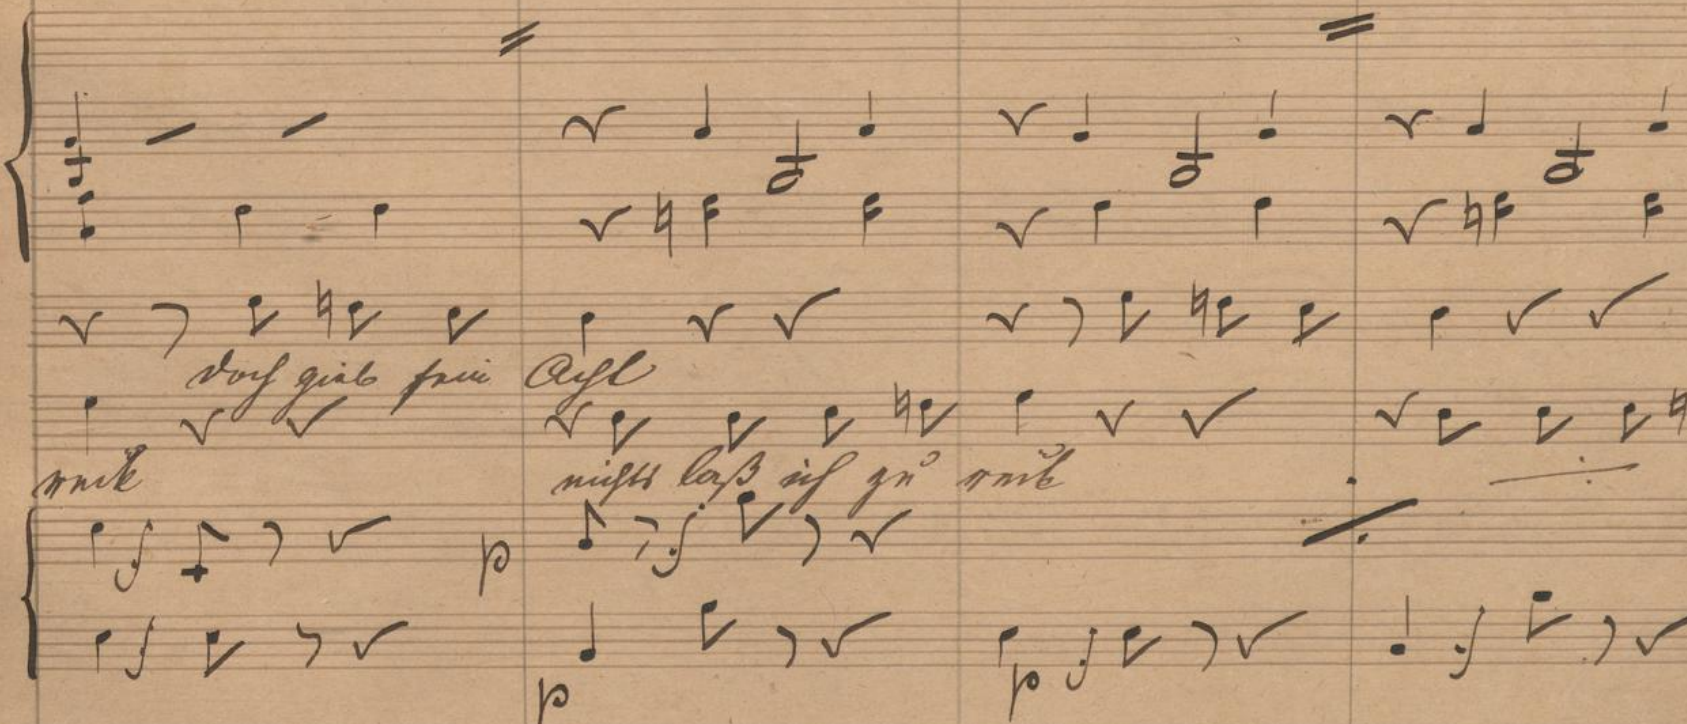 doch gieb fein Acht
rück nichts laß ich zu rück
p
p p